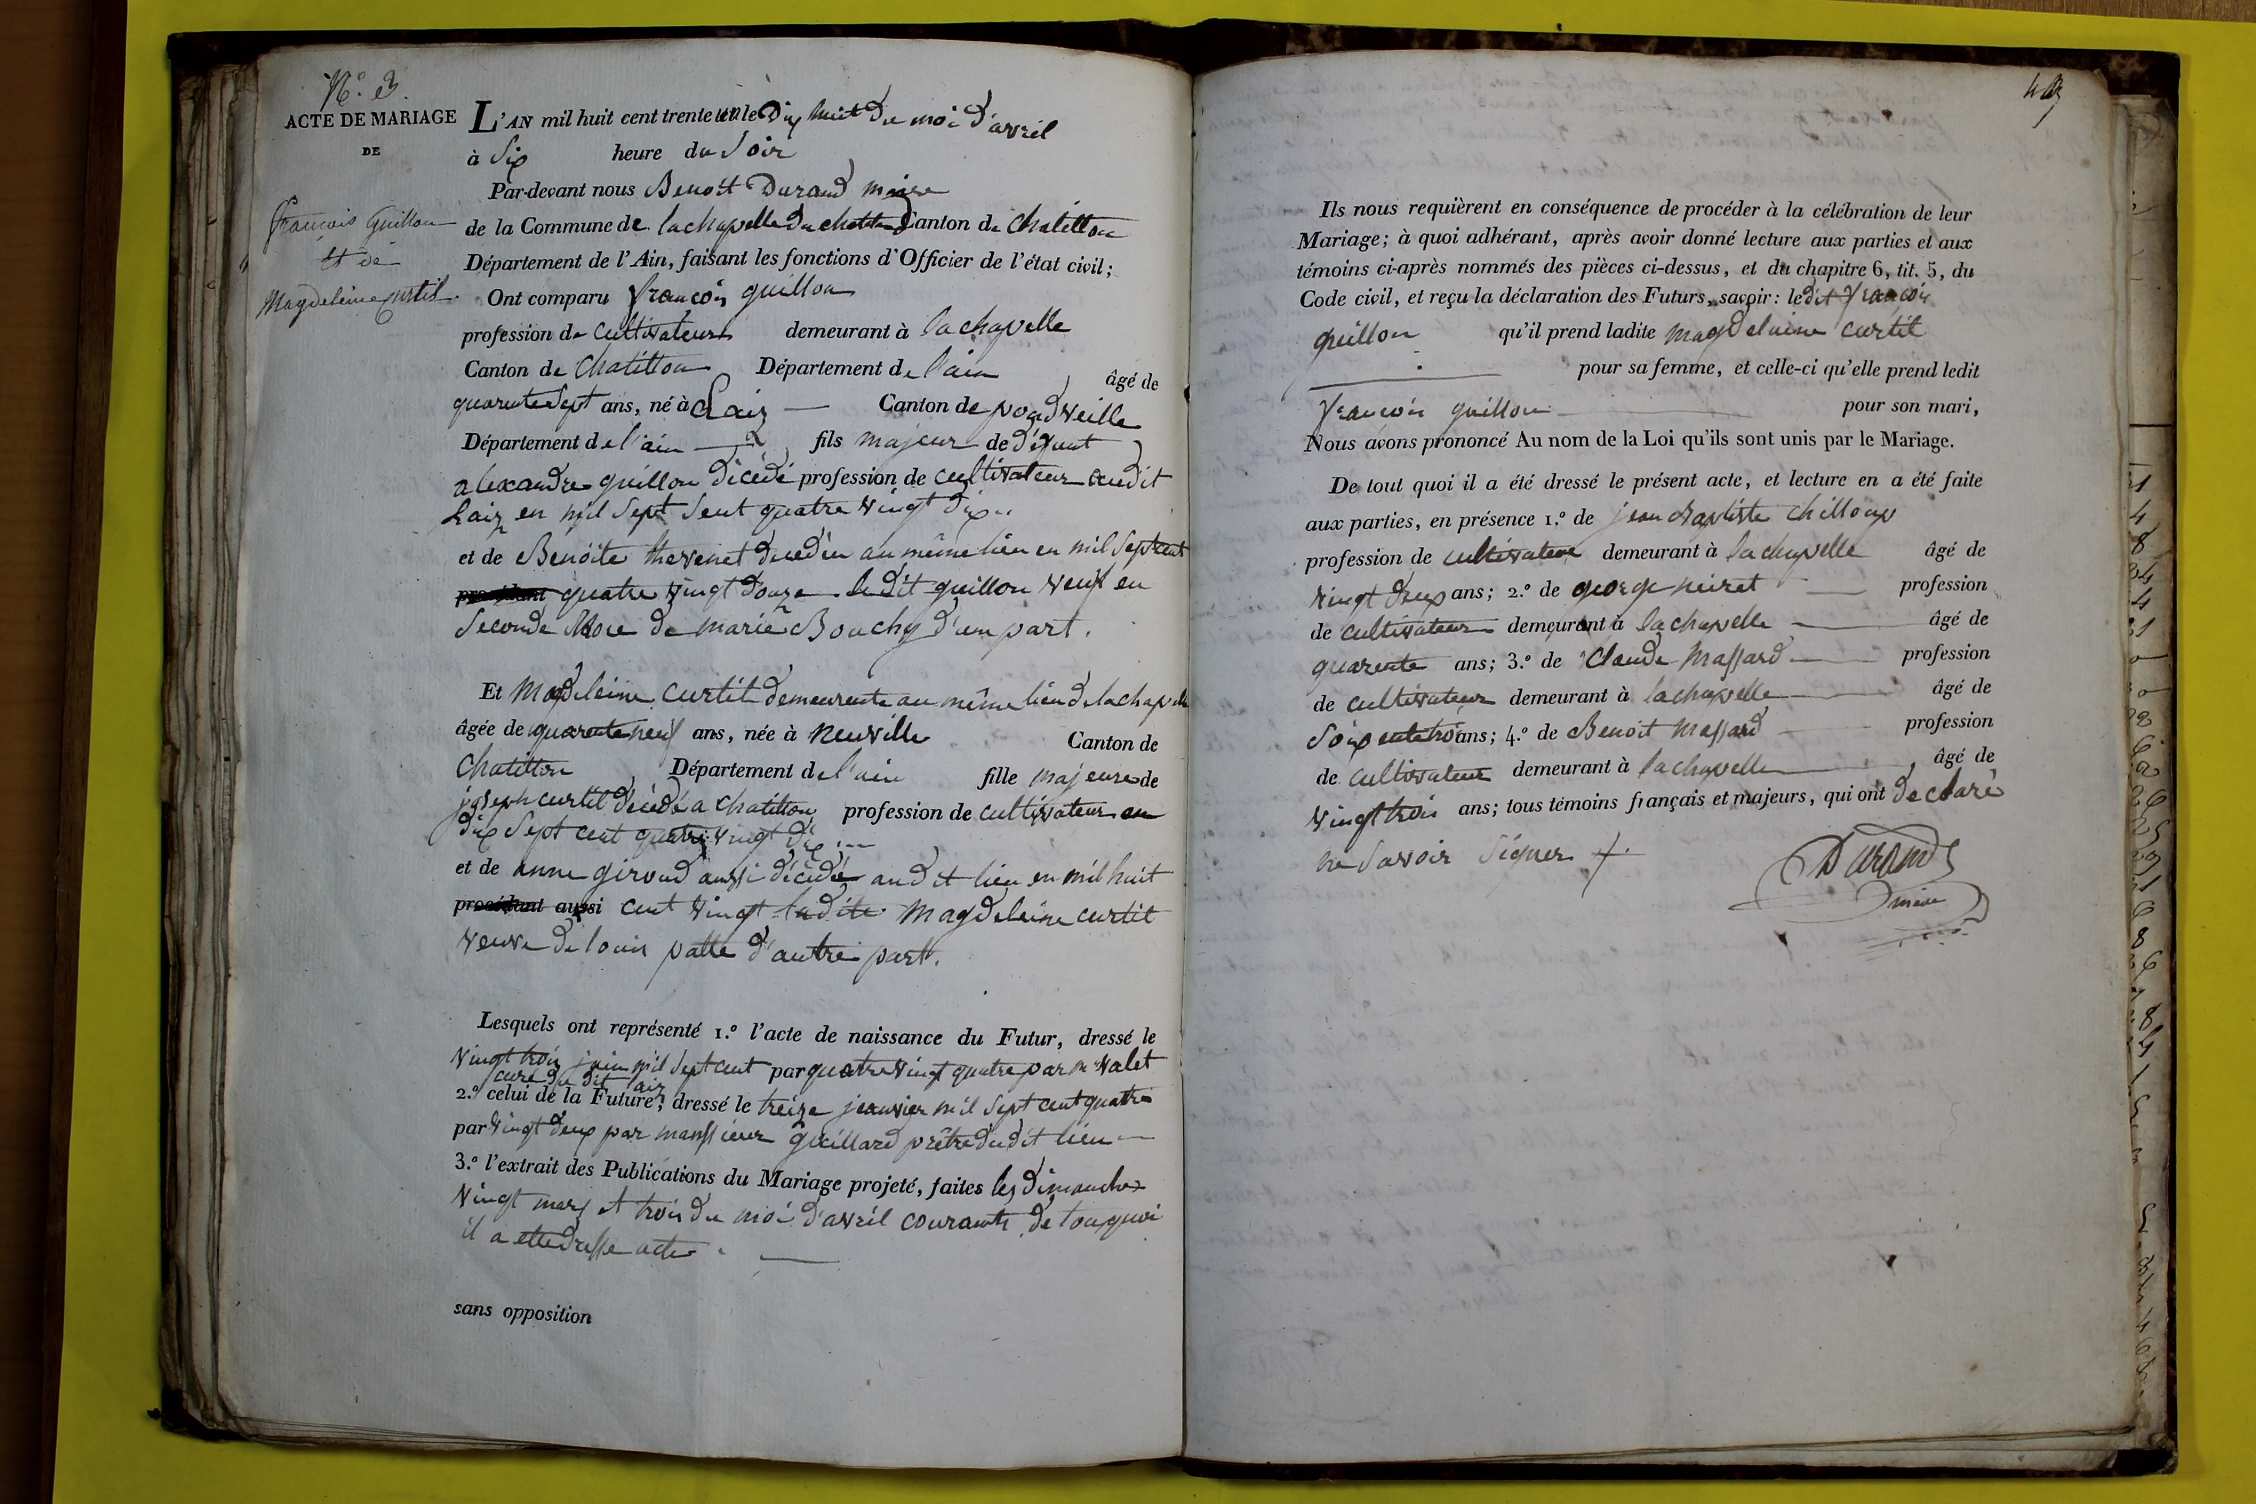 N.° 3.
ACTE DE MARIAGE
DE
françois Guillon
et de
Magdeleine curtil.
L'AN mil huit cent trente un le Dix huit Du moi d'avril
à Six heure du Soir
Par-devant nous Benoit Durand maire
de la Commune de lachapelle du chatelard Canton de Chatillon
Département de l'Ain, faisant les fonctions d'Officier de l'état civil;
Ont comparu françois guillon
profession de cultivateur demeurant à la chapelle
Canton de Chatillon Département de l'ain âgé de
quarente Sept ans, né à Canton de
Département de l'ain fils majeur de défunt
alexandre guillon décédé profession de cultivateur audit
en mil Sept Sent quatre vingt dix
et de Benoite thevenet au même lieu en mil Sept cent
quatre vingt douze le dit guillon veuf en
Seconde Noce de marie Bouchy d'un part.
Et Magdeleine curtil demeurente au même lieu de lachapelle
âgée de quarente neuf ans, née à neuville Canton de
Chatillon Département de l'ain fille majeure de
joseph curtil décédé a chatillon profession de cultivateur en
dix Sept cent quatre vingt dix
et de anne giroud aussi décédé audit lieu en mil huit
procédant aussi cent vingt ladite Magdeleine curtil
veuve de louis patte d'autre part.
Lesquels ont représenté 1.° l'acte de naissance du Futur, dressé le
vingt trois juin mil Sept cent par quatre vingt quatre par mr valet
curé du dit
2.° celui de la Future, dressé le treize jeanvier mil Sept cent quatre
par vingt deux par monssieur guillard prêtre dudit lieu
3.° l'extrait des Publications du Mariage projeté, faites les dimanches
vingt mars et trois du moi d'avril courants de touquoi
il a ette dresse acte
sans opposition
Ils nous requièrent en conséquence de procéder à la célébration de leur
Mariage; à quoi adhérant, après avoir donné lecture aux parties et aux
témoins ci-après nommés des pièces ci-dessus, et du chapitre 6, tit. 5, du
Code civil, et reçu la déclaration des Futurs, savoir: ledit françois
guillon qu'il prend ladite magdeleine curtil
pour sa femme, et celle-ci qu'elle prend ledit
françois guillon pour son mari,
Nous avons prononcé Au nom de la Loi qu'ils sont unis par le Mariage.
De tout quoi il a été dressé le présent acte, et lecture en a été faite
aux parties, en présence 1.° de jean Baptiste chilloux
profession de cultivateur demeurant à la chapelle âgé de
vingt deux ans; 2.° de george neiret profession
de cultivateur demeurant à la chapelle âgé de
quarente ans; 3.° de Claude Massard profession
de cultivateur demeurant à la chapelle âgé de
Soixente trois ans; 4.° de Benoit Massard profession
de cultivateur demeurant à la chapelle âgé de
vingt trois ans; tous témoins français et majeurs, qui ont declaré
ne Savoir Signer
Durand
maire